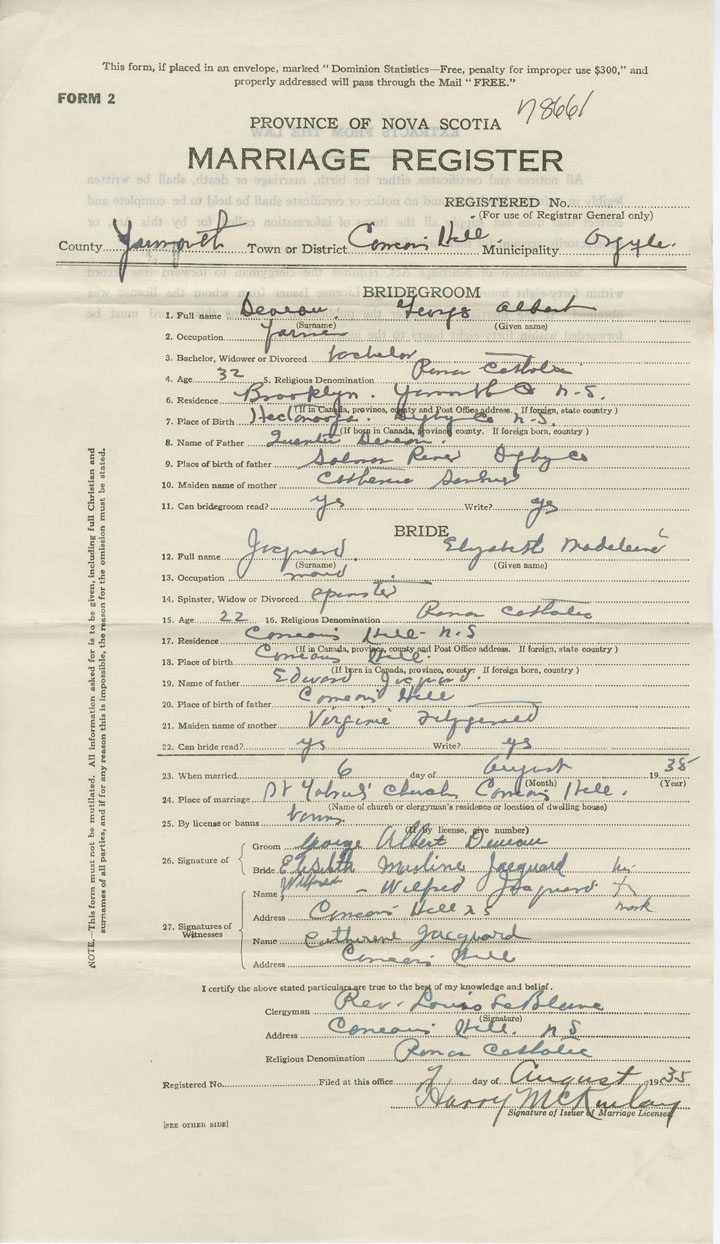 This form, if placed in an envelope, marked "Dominion Statistics—Free, penalty for improper use $300," and
properly addressed will pass through the Mail "FREE."
FORM 2
78661
PROVINCE OF NOVA SCOTIA
MARRIAGE REGISTER
REGISTERED No.
(For use of Registrar General only)
County Yarmouth Town or District Comeau's Hill Municipality Argyle.
BRIDEGROOM
1. Full name Deveau George Albert
(Surname) (Given name)
2. Occupation farmer
3. Bachelor, Widower or Divorced bachelor
4. Age 32 5. Religious Denomination Roman Catholic
6. Residence Brooklyn. Yarmouth Co N.S.
(If in Canada, province, county and Post Office address. If foreign, state country)
7. Place of Birth Digby Co N.S.
(If born in Canada, province, county. If foreign born, country)
8. Name of Father Deveau.
9. Place of birth of father Salmon River Digby Co
10. Maiden name of mother Catherine
11. Can bridegroom read? yes Write? yes
BRIDE
12. Full name Jacquard Elizabeth Madeleine
(Surname) (Given name)
13. Occupation maid
14. Spinster, Widow or Divorced spinster
15. Age 22 16. Religious Denomination Roman Catholic
17. Residence Comeau's Hill - N.S
(If in Canada, province, county and Post Office address. If foreign, state country)
18. Place of birth Comeau's Hill.
(If born in Canada, province, county. If foreign born, country)
19. Name of father Edward Jacquard.
20. Place of birth of father Comeau's Hill
21. Maiden name of mother Virginie Fitzgerald
22. Can bride read? yes Write? yes
23. When married 6 day of August 1935
(Month) (Year)
24. Place of marriage St Church Comeau's Hill.
(Name of church or clergyman's residence or location of dwelling house)
25. By license or banns banns
(If by license, give number)
26. Signature of
Groom George Albert Deveau
Bride Jacquard
27. Signatures of Witnesses
Name Wilfred - Wilfred Jacquard his X mark
Address Comeau's Hill N S
Name Catherine Jacquard
Address Comeau's Hill
I certify the above stated particulars are true to the best of my knowledge and belief.
Clergyman Rev. Louis LeBlanc
(Signature)
Address Comeau's Hill. N S
Religious Denomination Roman Catholic
Registered No. Filed at this office 7 day of August 1935
Harry McKinlay
Signature of Issuer of Marriage Licenses
[SEE OTHER SIDE]
NOTE.—This form must not be mutilated. All information asked for is to be given, including full Christian and
surnames of all parties, and if for any reason this is impossible, the reason for the omission must be stated.